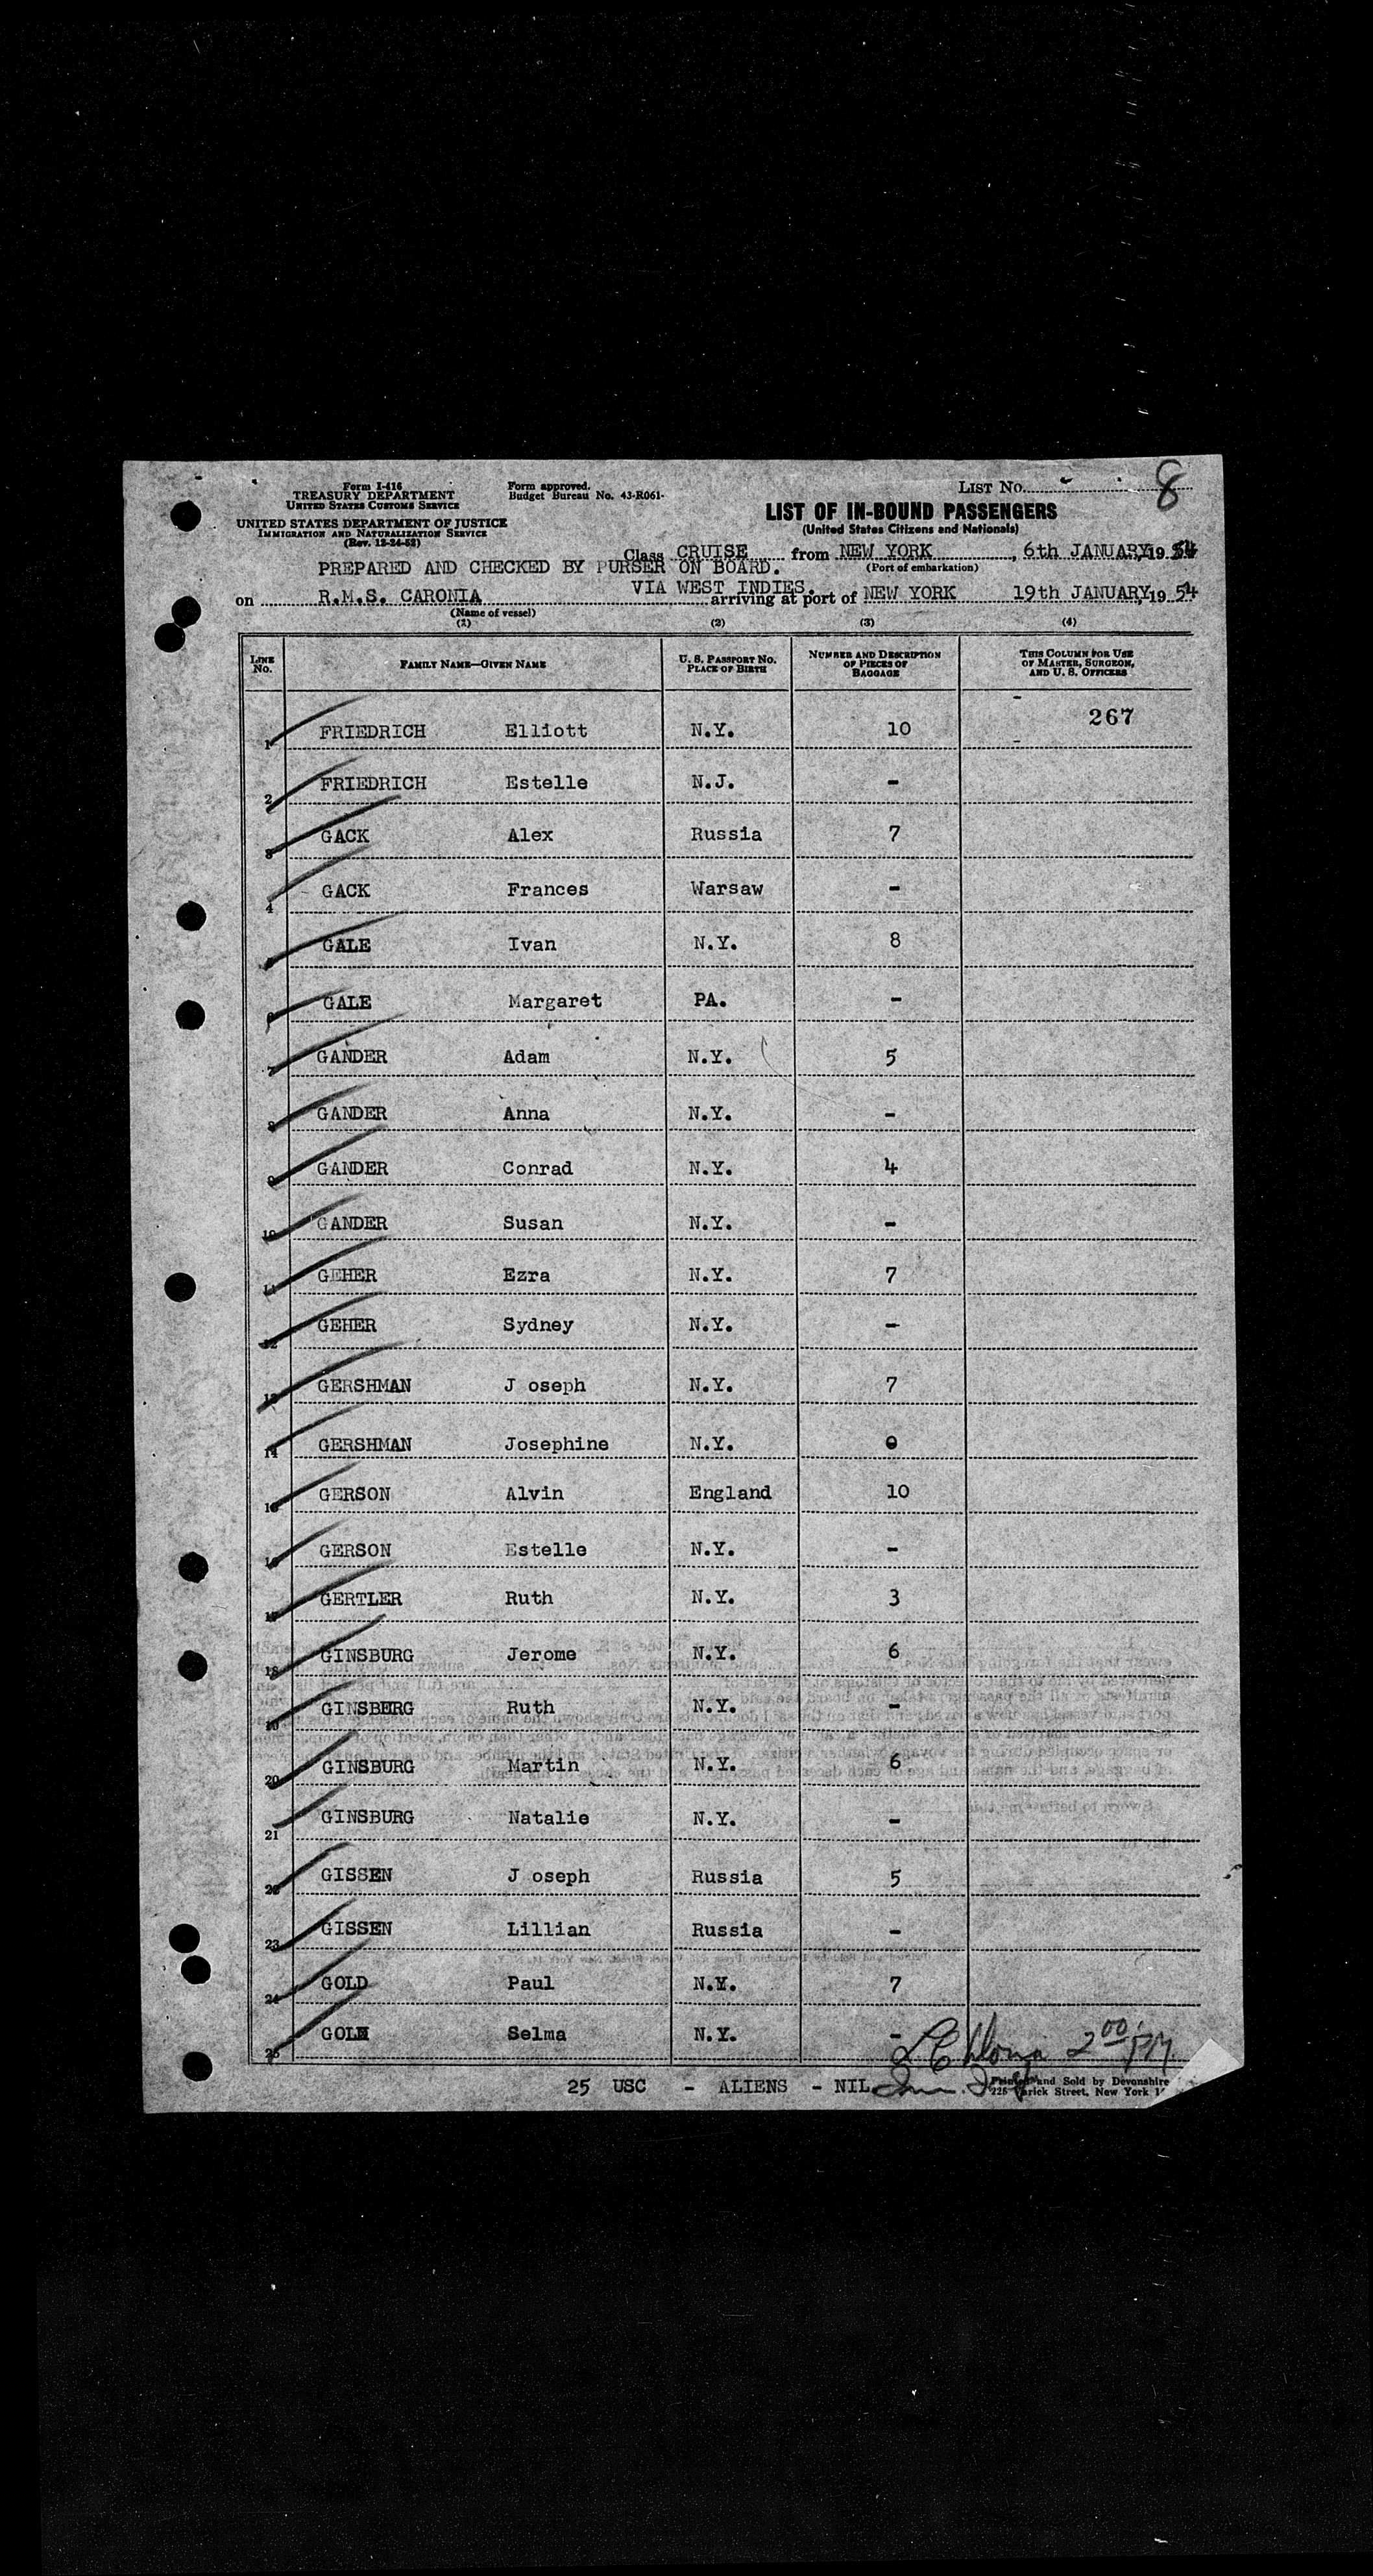 8
Form I-416
TREASURY DEPARTMENT
UNITED STATES CUSTOMS SERVICE
UNITED STATES DEPARTMENT OF JUSTICE
IMMIGRATION AND NATURALIZATION SERVICE
(Rev. 12-24-52)
Form approved.
Budget Bureau No. 43-R061-
LIST No.
LIST OF IN-BOUND PASSENGERS
(United States Citizens and Nationals)
Class CRUISE from NEW YORK, 6th JANUARY, 1954
(Port of embarkation)
PREPARED AND CHECKED BY PURSER ON BOARD.
VIA WEST INDIES.
on R.M.S. CARONIA arriving at port of NEW YORK 19th JANUARY, 1954
(Name of vessel)
(1) (2) (3) (4)
LINE No. FAMILY NAME—GIVEN NAME U. S. PASSPORT No. PLACE OF BIRTH NUMBER AND DESCRIPTION OF PIECES OF BAGGAGE THIS COLUMN FOR USE OF MASTER, SURGEON, AND U. S. OFFICERS
267
1 FRIEDRICH Elliott N.Y. 10
2 FRIEDRICH Estelle N.J. -
3 GACK Alex Russia 7
4 GACK Frances Warsaw -
5 GALE Ivan N.Y. 8
6 GALE Margaret PA. -
7 GANDER Adam N.Y. 5
8 GANDER Anna N.Y. -
9 GANDER Conrad N.Y. 4
10 GANDER Susan N.Y. -
11 GEHER Ezra N.Y. 7
12 GEHER Sydney N.Y. -
13 GERSHMAN J oseph N.Y. 7
14 GERSHMAN Josephine N.Y.
15 GERSON Alvin England 10
16 GERSON Estelle N.Y. -
17 GERTLER Ruth N.Y. 3
18 GINSBURG Jerome N.Y. 6
19 GINSBERG Ruth N.Y. -
20 GINSBURG Martin N.Y. 6
21 GINSBURG Natalie N.Y. -
22 GISSEN J oseph Russia 5
23 GISSEN Lillian Russia -
24 GOLD Paul N.Y. 7
25 GOLD Selma N.Y. -
2 00 PM
25 USC - ALIENS - NIL
Printed and Sold by Devonshire
225 Varick Street, New York 1